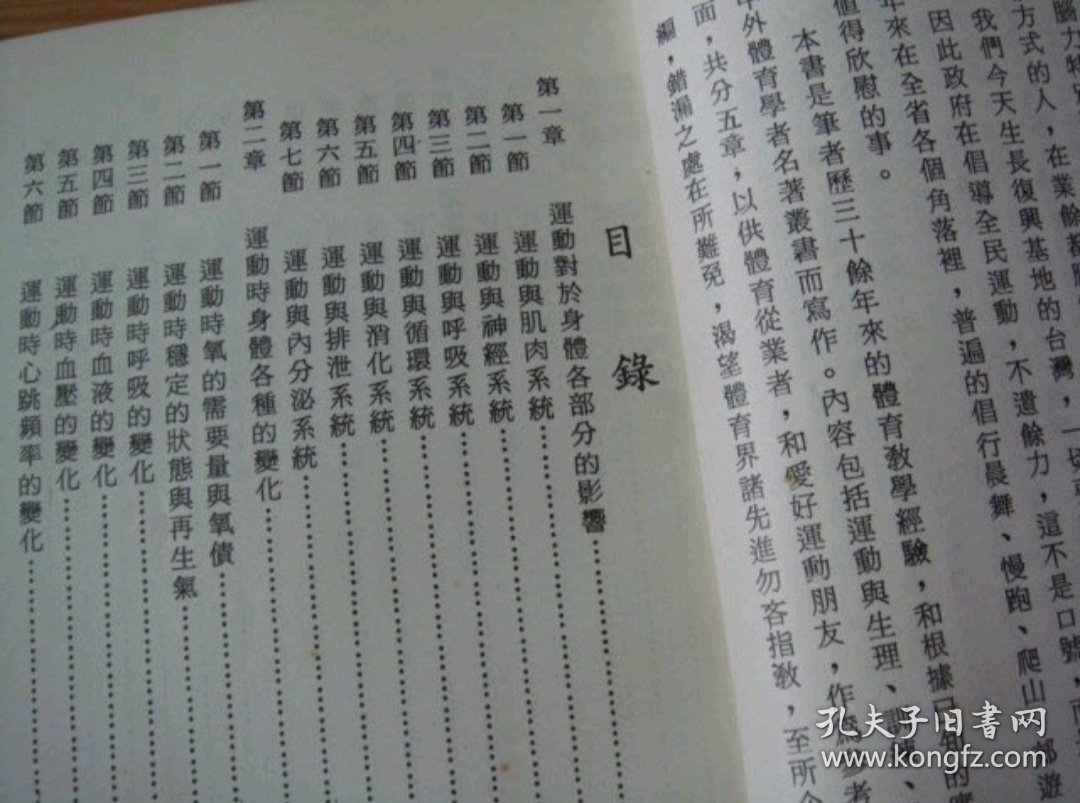 腦力特
方式的人，在業餘都
我們今天生長復興基地的台灣，一
因此政府在倡導全民運動，不遺餘力，這不是口號，而
年來在全省各個角落裡，普遍的倡行晨舞、慢跑、爬山、郊遊
值得欣慰的事。
本書是筆者歷三十餘年來的體育教學經驗，和根據
中外體育學者名著叢書而寫作。內容包括運動與生理、
面，共分五章，以供體育從業者，和愛好運動朋友，作為參考
編，錯漏之處在所難免，渴望體育界諸先進勿吝指教，至所
目錄
第一章 運動對於身體各部分的影響
第一節 運動與肌肉系統
第二節 運動與神經系統
第三節 運動與呼吸系統
第四節 運動與循環系統
第五節 運動與消化系統
第六節 運動與排泄系統
第七節 運動與內分泌系統
第二章 運動時身體各種的變化
第一節 運動時氧的需要量與氧債
第二節 運動時穩定的狀態與再生氣
第三節 運動時呼吸的變化
第四節 運動時血液的變化
第五節 運動時血壓的變化
第六節 運動時心跳頻率的變化
孔夫子旧书网
www.kongfz.com